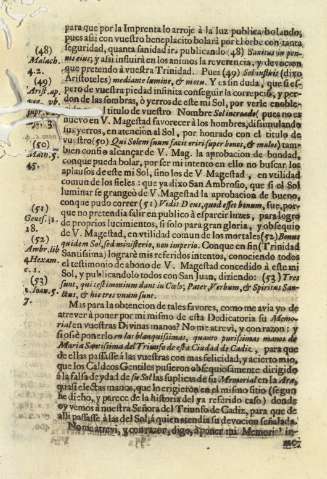 para que por la Imprenta lo arroje à la luz publica bolando;
pues assi con vuestro beneplacito bolarà por el orbe con tanta
(48)
Malach.
4. 2.
seguridad, quanta sanidad irà publicando: (48) Sanitas in pen-
nis eius; y alsi influirà en los animos la reverencia, y devocion
que pretendo à vuestra Trinidad. Pues (49) Sol instris (dixo
(49)
Aristoteles) mediante lumine, & motu. Y es sin duda, que si es-
pero de vuestra piedad infinita conseguir la correpcio, y per-
don de las sombras, ò yerros de este mi Sol, por verle enoble-
cido en el titulo de vuestro Nombre Sol increado; pues no es
nuevo en V. Magestad favorecer à los hombres, dissimulando
sus yerros, en atencion al Sol, por honrado con el titulo de
(50)
Mat. 5.
45.
vuestro: (50) Qui Solem suum oriri facit super bonos, & malos; tam-
bien confio alcançar de V. Mag. la aprobacion de bondad,
conque pueda bolar, por ser mi intento en ello no buscar los
aplausos de este mi Sol, sino los de V. Magestad, en vtilidad
comun de los fieles: que ya dixo San Ambrosio, que si el Sol
luminar se grangeò de V. Magestad la aprobacion de bueno,
(51)
Genes. 1.
18.
conque pudo correr (51) Vidit Deus, quod esset bonum, fue, por-
que no pretendia salir en publico à esparcir luzes, para logro
de proprios lucimientos, si solo para gran gloria, y obsequio
(52)
Amb. lib.
4. Hexam.
c. 1.
de V. Magestad, en vtilidad comun de los mortales (52) Bonus
quidem Sol, sed ministerio, non imperio. Conque en fin (Trinidad
Santissima) lograrè mis referidos intentos, conociendo todos
el testimonio de abono de V. Magestad concedido à este mi
(53)
1. Ioan. 5.
7.
Sol, y publicandolo todos con San Juan, diziendo: (53) Tres
sunt, qui testimonium dant in Cælo, Pater, Verbum, & Spiritus Sanc-
tus, & hi tres vnum sunt.
Mas para la obtencion de tales favores, como me avia yo de
atrever à poner por mi mismo de esta Dedicatoria su Memo-
rial en vuestras Divinas manos? No me atrevì, y con razon: y
si osè ponerlo en las blanquissimas, quanto purissimas manos de
Maria Santissima del Triunfo de esta Ciudad de Cadiz, para que
de ellas passasse à las vuestras con mas felicidad, y acierto mio,
que los Caldeos Gentiles pusieron obsequiosamente dirigido
à la falsa deydad de su Sol las suplicas de su Memorial en la Ara,
quasi electas manos, que le erigieron en el mismo sitio (segun
he dicho, y parece de la historia del ya referido caso) donde
oy vemos à nuestra Señora del Triunfo de Cadiz, para que de
alli passasse à las del Sol, à quien stendia su devocion señalada.
No me atrevì, y con razon, digo, à poner mi Memorial in-